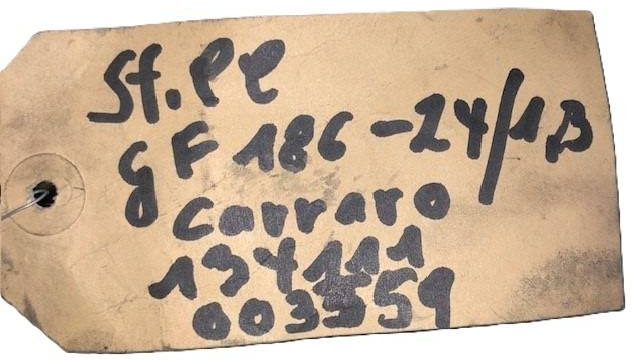 St. Pl
GF 186-24/1B
Carraro
134111
003559